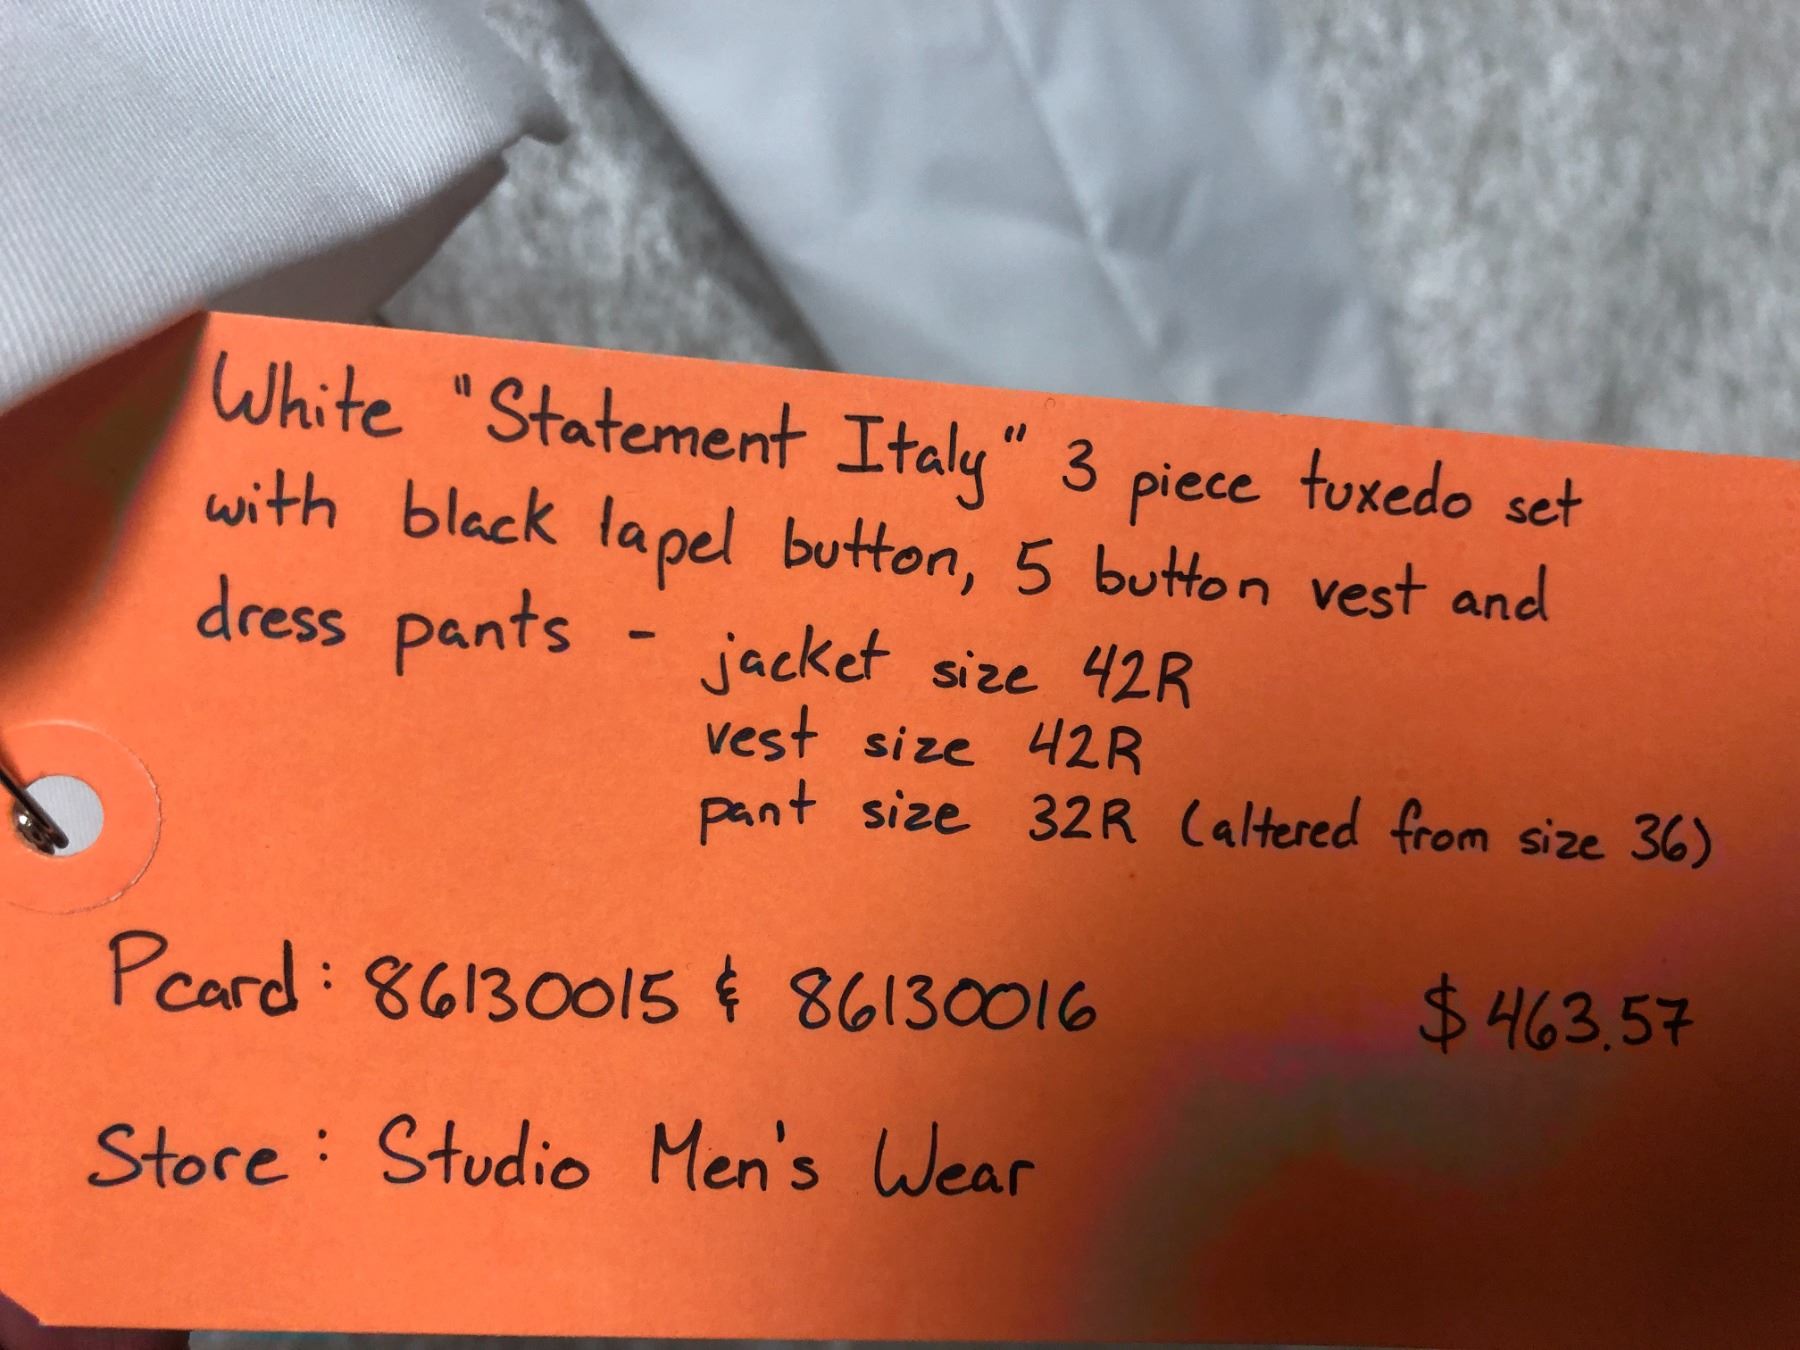 White "Statement Italy" 3 piece tuxedo set
with black lapel button, 5 button vest and
dress pants - jacket size 42R
vest size 42R
pant size 32R (altered from size 36)
Pcard: 86130015 & 86130016 $463.57
Store: Studio Men's Wear